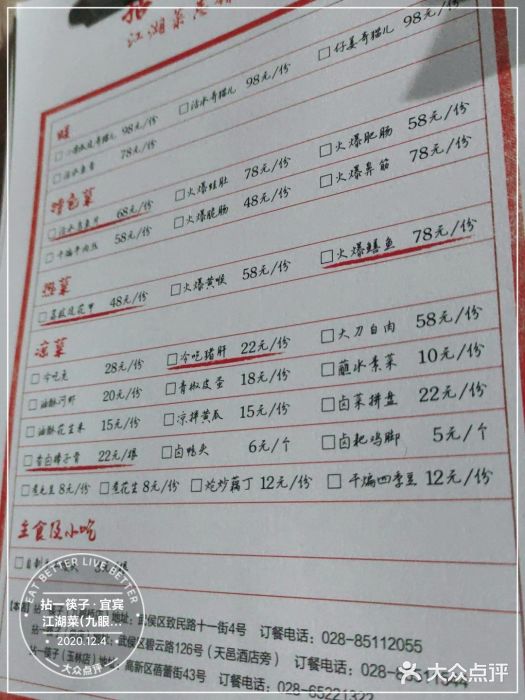 江湖菜
□ 98元/份 □ 98元/份 □仔姜 98元/份
78元/份
特色菜
□活水 68元/份 □火爆蛙肚 78元/份 □火爆肥肠 58元/份
□干煸牛肉丝 58元/份 □火爆脆肠 48元/份 □火爆鼻筋 78元/份
48元/份 □火爆黄喉 58元/份 □火爆鳝鱼 78元/份
凉菜
□冷吃兔 28元/份 □冷吃猪肝 22元/份 □大刀白肉 58元/份
□油酥河虾 20元/份 □青椒皮蛋 18元/份 □蘸水素菜 10元/份
□油酥花生米 15元/份 □凉拌黄瓜 15元/份 □卤菜拼盘 22元/份
22元/ □卤鸭头 6元/个 □卤粑鸡脚 5元/个
□煮毛豆 8元/份 □煮花生 8元/份 □炝炒藕丁 12元/份 □干煸四季豆 12元/份
主食及小吃
□自制
EAT BETTER LIVE BETTER
拈一筷子·宜宾
江湖菜(九眼...
2020.12.4
大众点评
地址：武侯区致民路十一街4号 订餐电话：028-85112055
武侯区碧云路126号（天邑酒店旁） 订餐电话：028-
拈一筷子(玉林店) 地址：高新区蓓蕾街43号 订餐电话：028-65221322
大众点评